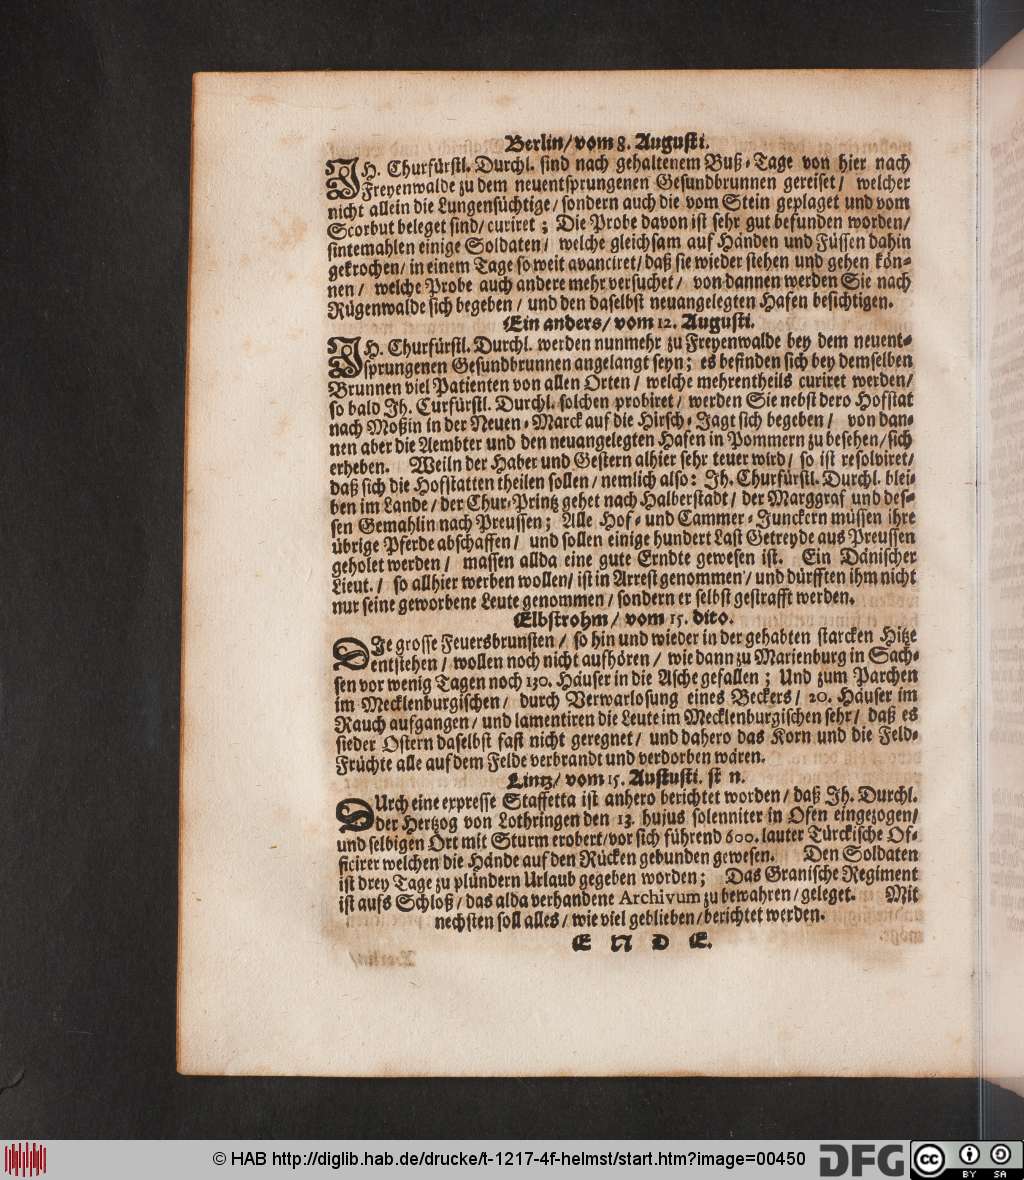 Berlin/ vom 8. Augusti.
IH. Churfürstl. Durchl. sind nach gehaltenem Buß-Tage von hier nach
Freyenwalde zu dem neuentsprungenen Gesundbrunnen gereiset/ welcher
nicht allein die Lungensüchtige/ sondern auch die vom Stein geplaget und vom
Scorbut beleget sind/ curiret; Die Probe davon ist sehr gut befunden worden/
sintemahlen einige Soldaten/ welche gleichsam auf Händen und Füssen dahin
gekrochen/ in einem Tage so weit avanciret/ daß sie wieder stehen und gehen kön-
nen/ welche Probe auch andere mehr versuchet/ von dannen werden Sie nach
Rügenwalde sich begeben/ und den daselbst neuangelegten Hafen besichtigen.
Ein anders/ vom 12. Augusti.
IH. Churfürstl. Durchl. werden nunmehr zu Freyenwalde bey dem neuent-
sprungenen Gesundbrunnen angelangt seyn; es befinden sich bey demselben
Brunnen viel Patienten von allen Orten/ welche mehrentheils curiret werden/
so bald Ih. Curfürstl. Durchl. solchen probiret/ werden Sie nebst dero Hofstat
nach Moßin in der Neuen-Marck auf die Hirsch-Jagt sich begeben/ von dan-
nen aber die Aembter und den neuangelegten Hafen in Pommern zu besehen/ sich
erheben. Weiln der Haber und Gestern alhier sehr teuer wird/ so ist resolviret/
daß sich die Hofstatten theilen sollen/ nemlich also: Ih. Churfürstl. Durchl. blei-
ben im Lande/ der Chur-Printz gehet nach Halberstadt/ der Marggraf und des-
sen Gemahlin nach Preussen; Alle Hof- und Cammer-Junckern müssen ihre
übrige Pferde abschaffen/ und sollen einige hundert Last Getreyde aus Preussen
geholet werden/ massen allda eine gute Erndte gewesen ist. Ein Dänischer
Lieut./ so allhier werben wollen/ ist in Arrest genommen/ und dürfften ihm nicht
nur seine geworbene Leute genommen/ sondern er selbst gestrafft werden.
Elbstrohm/ vom 15. dito.
DIe grosse Feuersbrunsten/ so hin und wieder in der gehabten starcken Hitze
entstehen/ wollen noch nicht aufhören/ wie dann zu Marienburg in Sach-
sen vor wenig Tagen noch 130. Häuser in die Asche gefallen; Und zum Parchen
im Mecklenburgischen/ durch Verwarlosung eines Beckers/ 20. Häuser im
Rauch aufgangen/ und lamentiren die Leute im Mecklenburgischen sehr/ daß es
sieder Ostern daselbst fast nicht geregnet/ und dahero das Korn und die Feld-
Früchte alle auf dem Felde verbrandt und verdorben wären.
Lintz/ vom 15. Austusti. st n.
DUrch eine expresse Staffetta ist anhero berichtet worden/ daß Ih. Durchl.
der Hertzog von Lothringen den 13. hujus solenniter in Ofen eingezogen/
und selbigen Ort mit Sturm erobert/ vor sich führend 600. lauter Türckische Of-
ficirer welchen die Hände auf den Rücken gebunden gewesen. Den Soldaten
ist drey Tage zu plündern Urlaub gegeben worden; Das Granische Regiment
ist aufs Schloß/ das alda verhandene Archivum zu bewahren/ geleget. Mit
nechsten soll alles/ wie viel geblieben/ berichtet werden.
E N D E.
© HAB http://diglib.hab.de/drucke/t-1217-4f-helmst/start.htm?image=00450
DFG
cc
BY SA